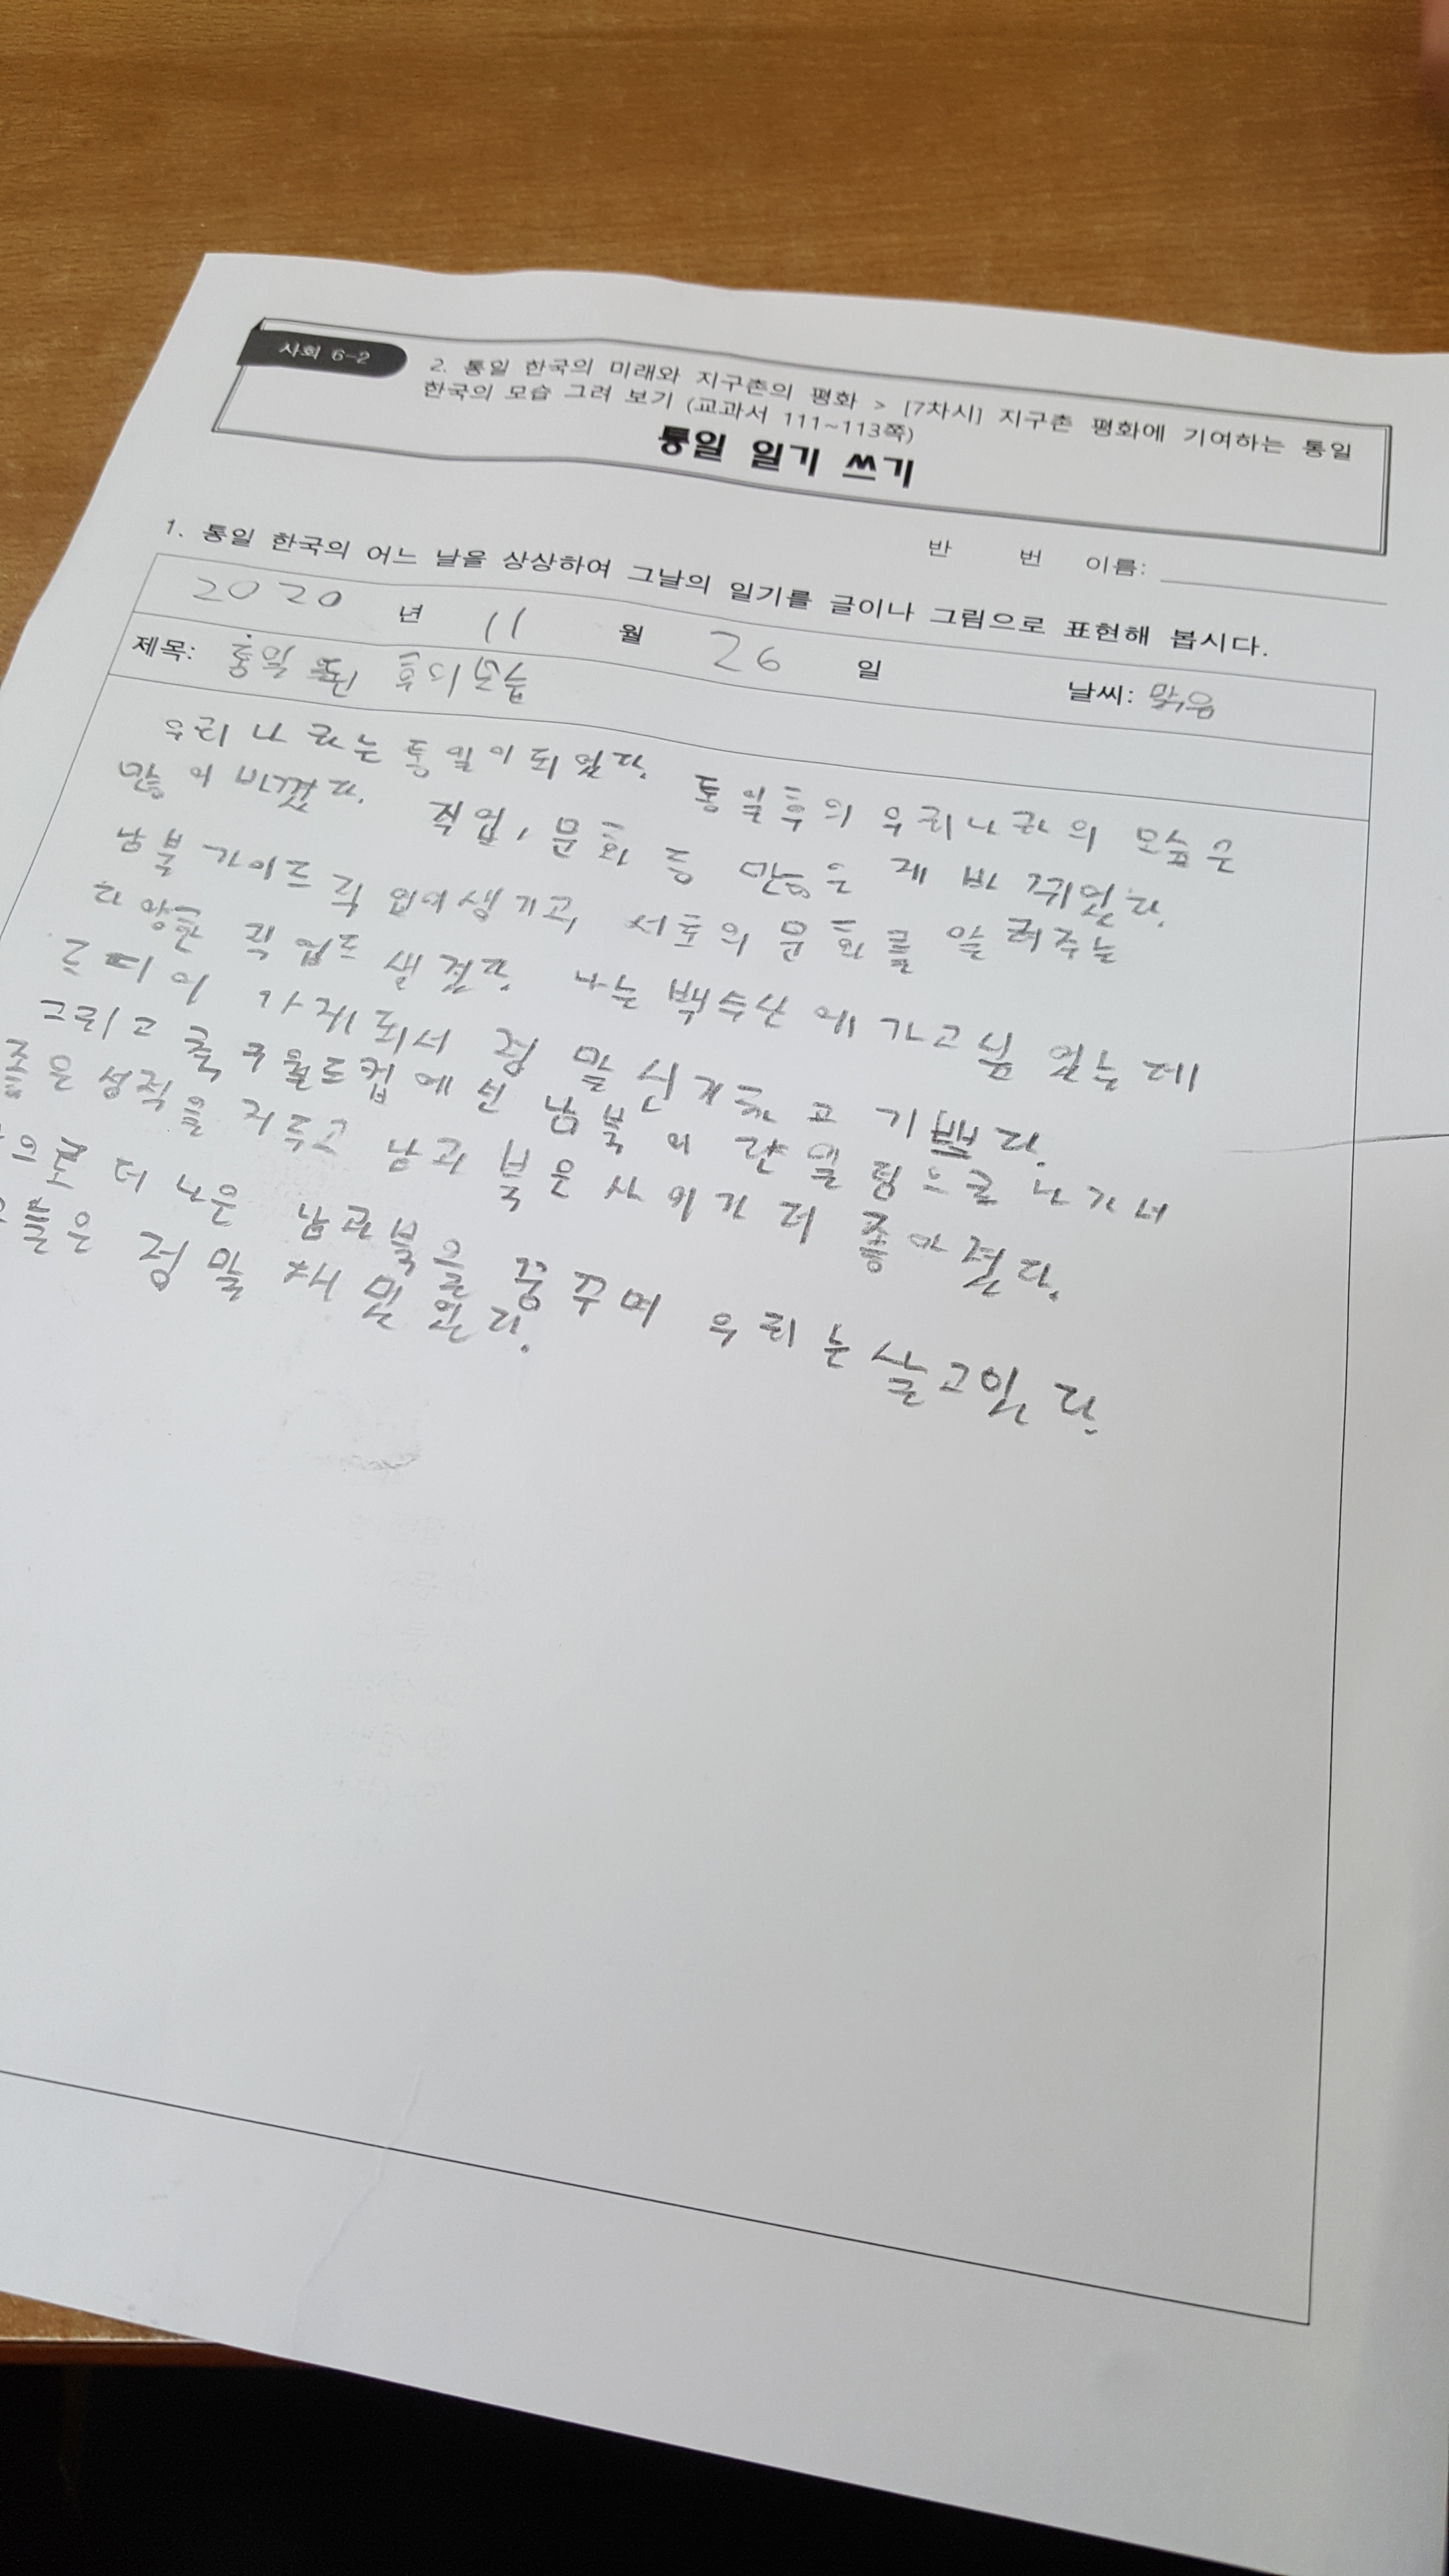 사회 6-2
2. 통일 한국의 미래와 지구촌의 평화 > [7차시] 지구촌 평화에 기여하는 통일
한국의 모습 그려 보기 (교과서 111~113쪽)
통일 일기 쓰기
반 번 이름:
1. 통일 한국의 어느 날을 상상하여 그날의 일기를 글이나 그림으로 표현해 봅시다.
2020 년 11 월 26 일 날씨: 맑음
제목:
우리나라는 통일이 되었다. 통일후의 우리나라의 모습은
많이 바꼈다. 직업, 문화 등 많은게 바뀌었다.
남북 가이드 직업이생기고, 서로의 문화를 알려주는
다양한 직업도 생겼다. 나는 백두산에 가고싶었는데
드디어 가게되서 정말 신기하고 기뻤다.
그리고 축구월드컵에선 남북이 단일팀으로 나가서
좋은 성적을 거두고 남과 북은 사이가 더 좋아졌다.
더 나은 남과북을 꿈꾸며 우리는 살고있다.
들은 정말